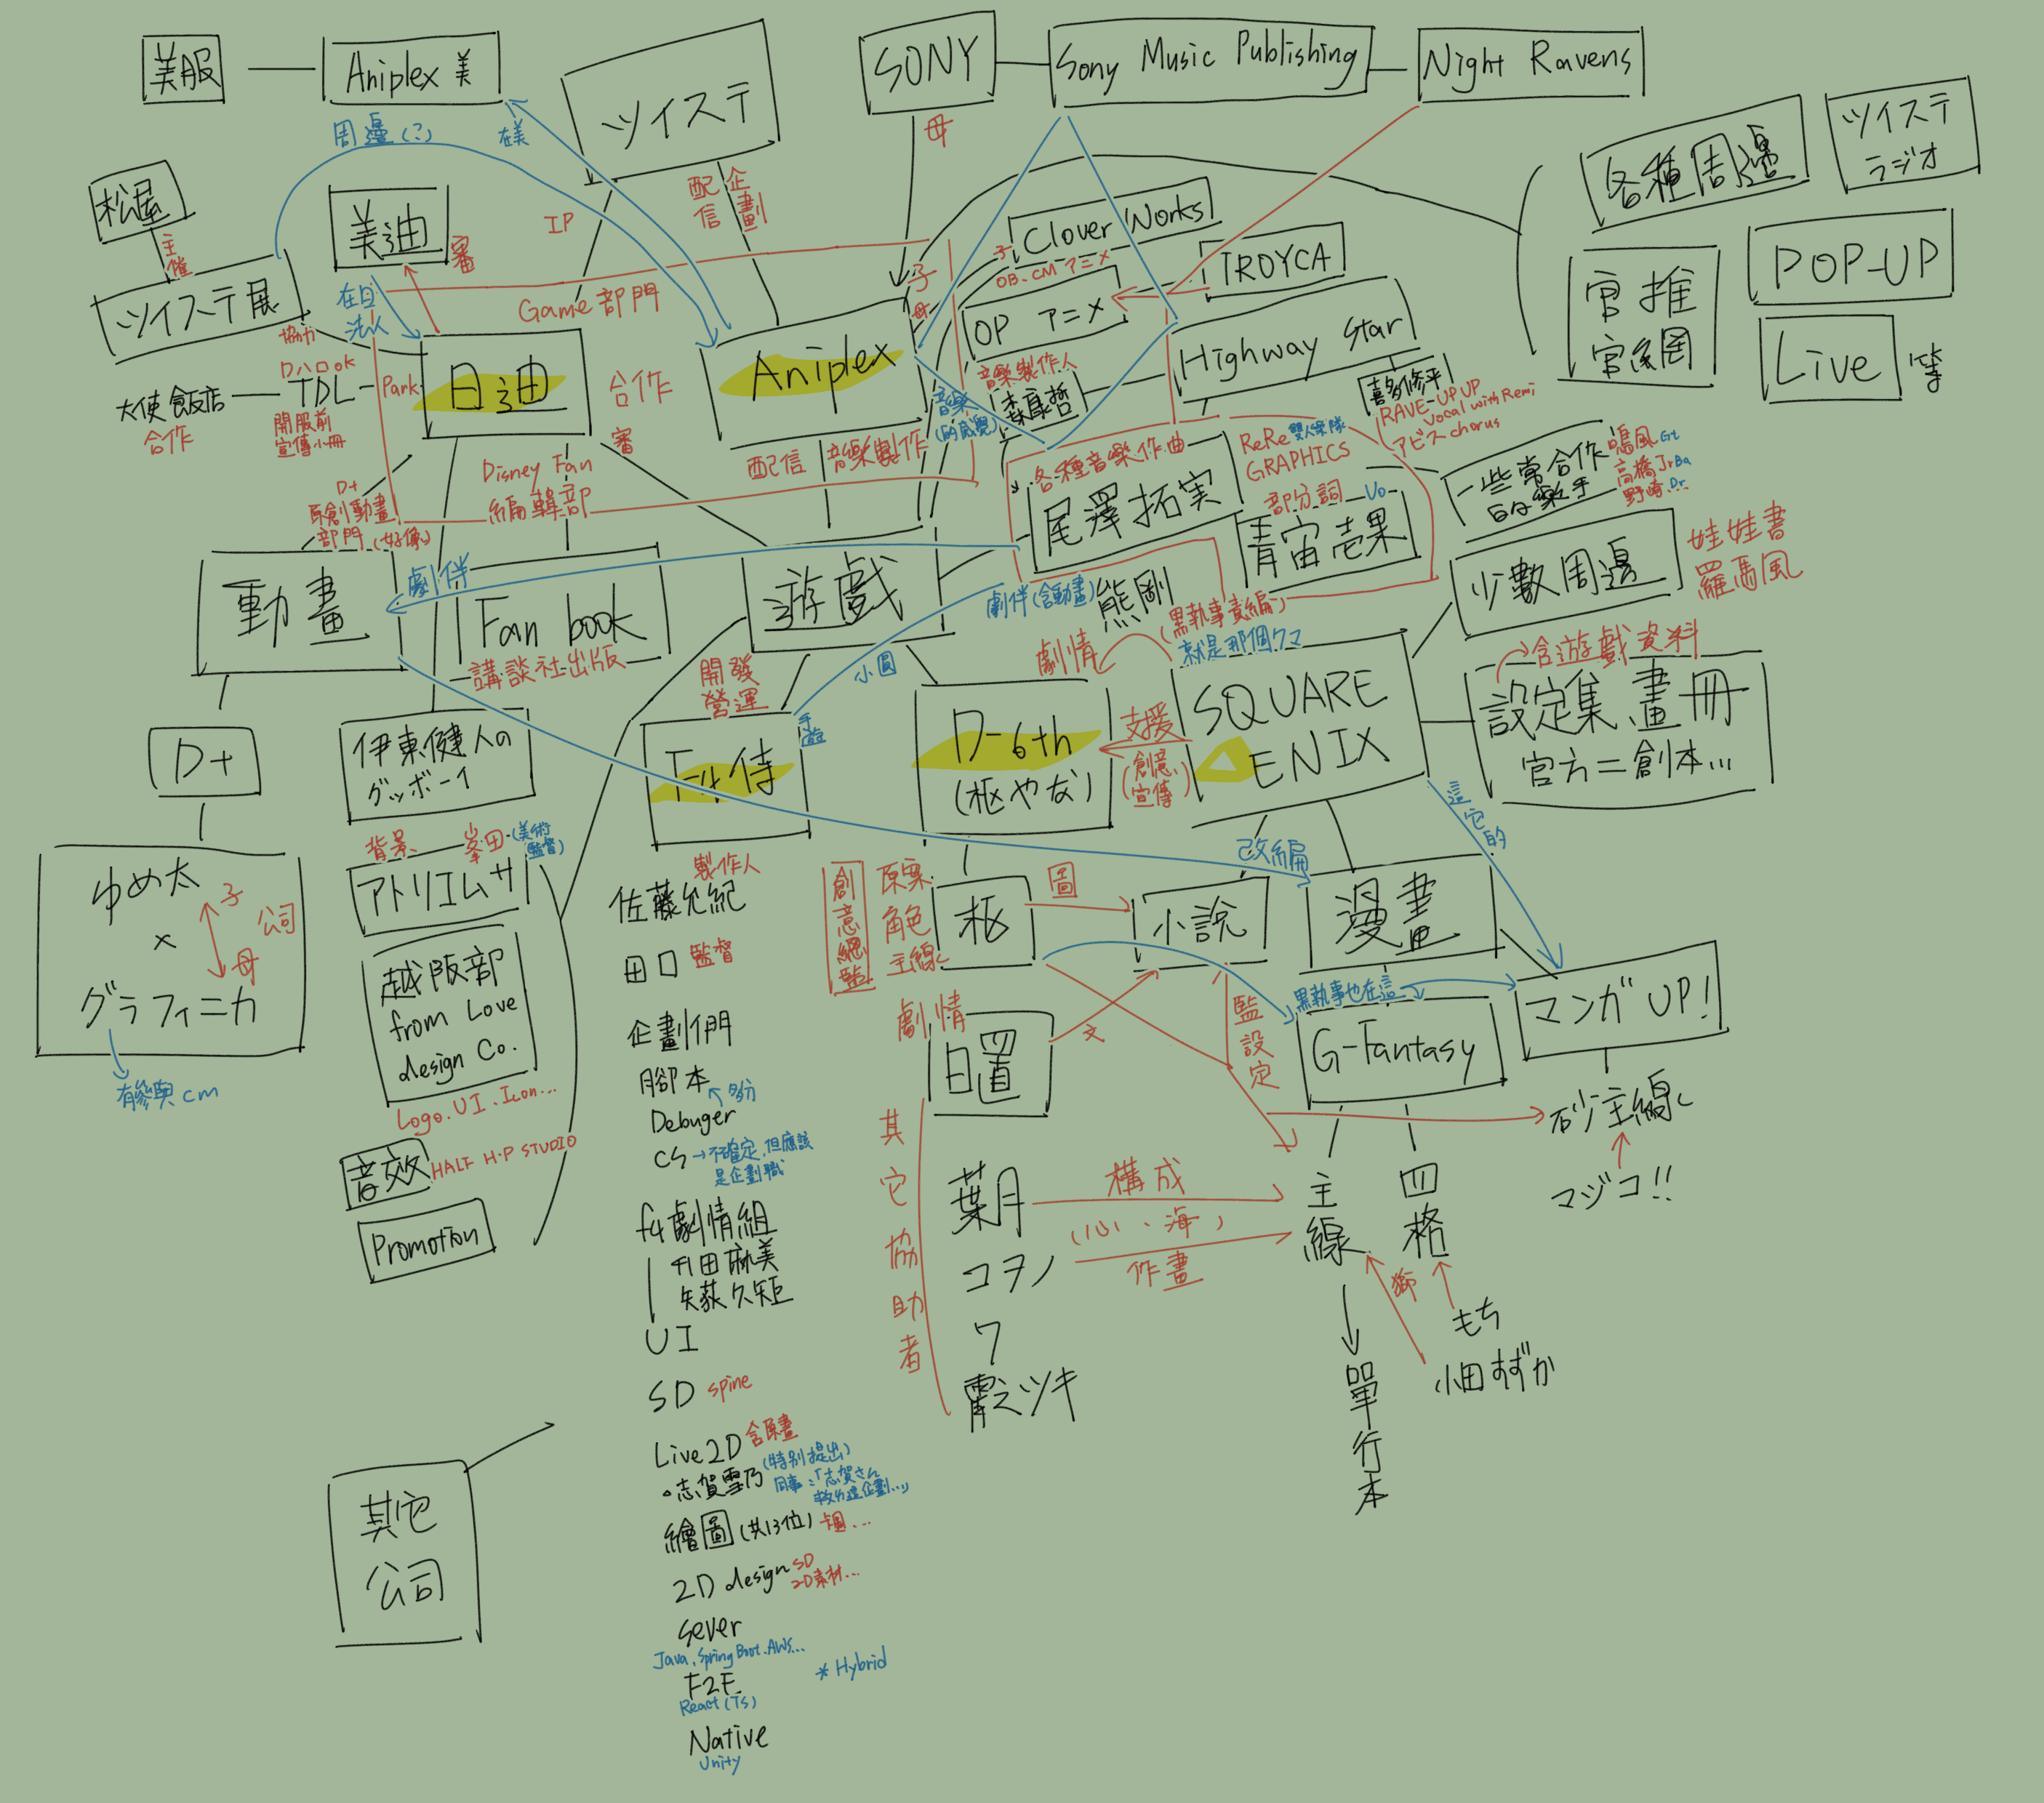 美服
Aniplex 美
ツイステ
SONY
Sony Music Publishing
Night Ravens
周邊(?)
在美
母
各種周邊
ツイステ
ラジオ
松屋
主催
美迪
審
IP
配信
企劃
Clover Works
子
OB、CM アニメ
TROYCA
官推
官網
POP-UP
Live
等
ツイステ展
協力
在日
法人
Game部門
子
母
OP アニメ
Highway Star
Aniplex
日迪
合作
審
大使飯店
合作
TDL
開服前
宣傳小冊
Park
音樂製作人
森康哲
音樂
(的感覺)
喜多修平
RAVE-UP UP
Vocal with Remi
アビス chorus
配信
音樂製作
各種音樂作曲
尾澤拓実
ReRe 雙人樂隊
GRAPHICS
部分詞
Vo
青宙壱果
一些常合作
的樂手
鳴風 Gt
高橋Jr Ba
野崎 Dr...
Disney Fan
編輯部
D+
原創動畫
部門(好像)
動畫
劇伴
Fan book
講談社出版
遊戲
劇伴(含動畫)
熊剛
(黒執事責編)
就是那個クマ
劇情
少數周邊
娃娃書
羅馬風
小圓
開發
營運
手遊
D-6th
(枢やな)
支援
(創意、
宣傳)
SQUARE
ENIX
含遊戲資料
設定集、畫冊
官方二創本...
這它的
D+
伊東健人の
グッボーイ
F4侍
ゆめ太
×
グラフィニカ
子
母
公司
有參與cm
背景
峯田
(美術
監督)
アトリエムサ
越阪部
from Love
design Co.
Logo、UI、Icon...
音效
HALF H·P STUDIO
Promotion
製作人
佐藤允紀
田口
監督
企劃們
腳本
多分
Debuger
CS
→不確定,但應該
是企劃職
f4劇情組
刊田麻美
矢荻久矩
UI
SD
spine
Live2D
含原畫
志賀雪乃
(特別提出)
同事:「志賀さん
繪圖(共13位)
卡圖...
2D design
SD
2D素材...
Sever
Java、Spring Boot、AWS...
F2E
React(Ts)
*Hybrid
Native
Unity
創意總監
原案
角色
主線
枢
圖
小說
改編
漫畫
劇情
日置
文
監設定
黒執事也在這
G-Fantasy
マンガUP!
砂主線
マジコ!!
其它協助者
葉月
コヲノ
ワ
構成
(心、海)
作畫
主線
四格
獅
もち
小田すずか
單行本
其它
公司